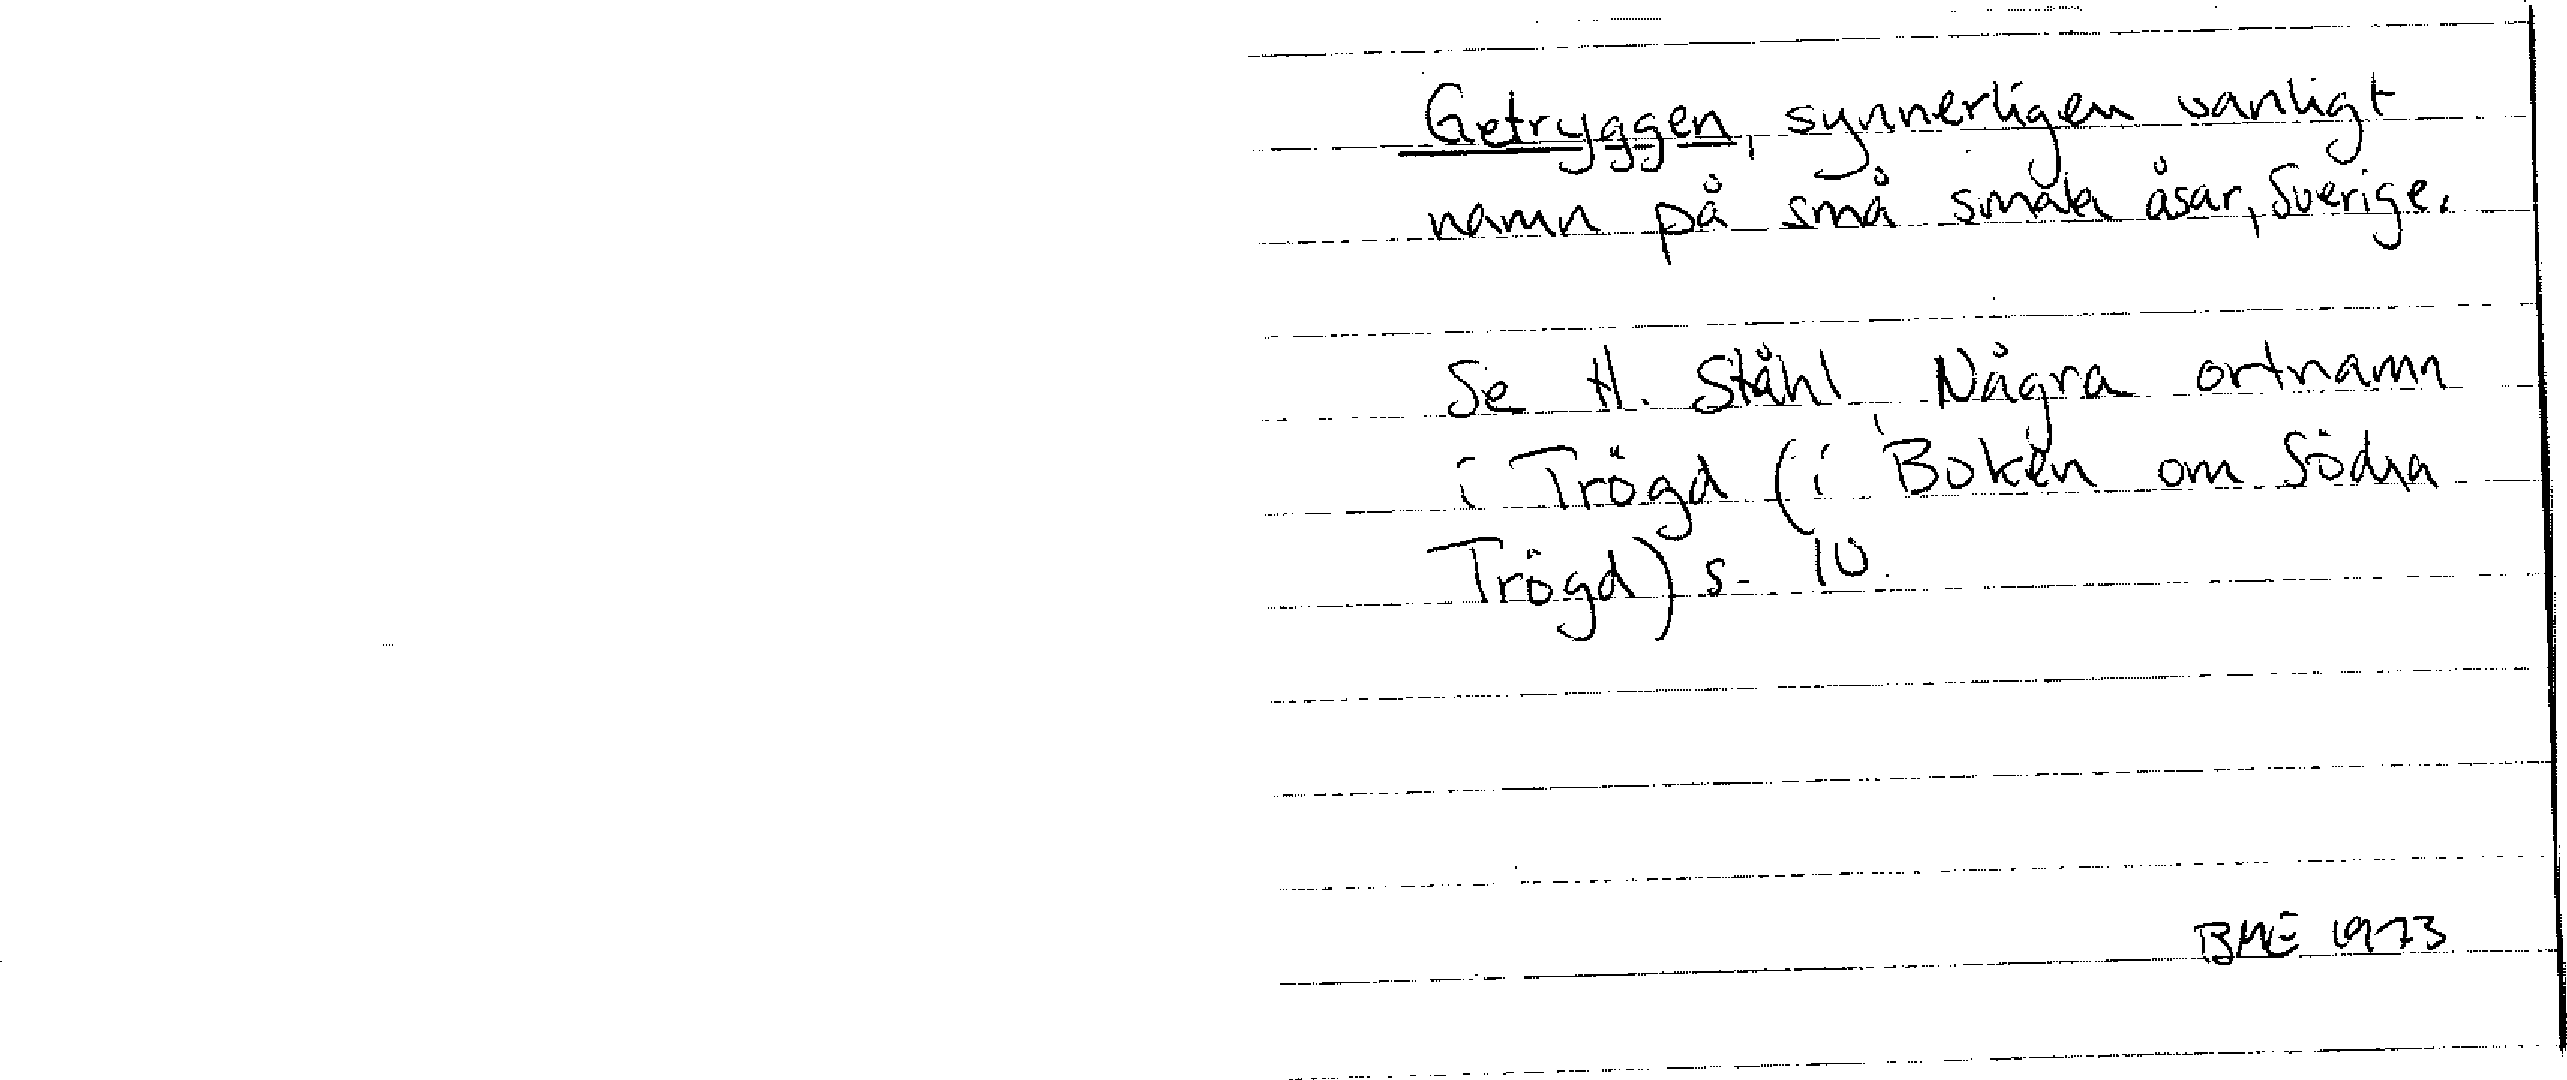 Getryggen, synnerligen vanligt
namn på små smala åsar, Sverige.
Se H. Ståhl, Några ortnamn
i Trögd (i Boken om Södra
Trögd) s. 10.
BME 1973